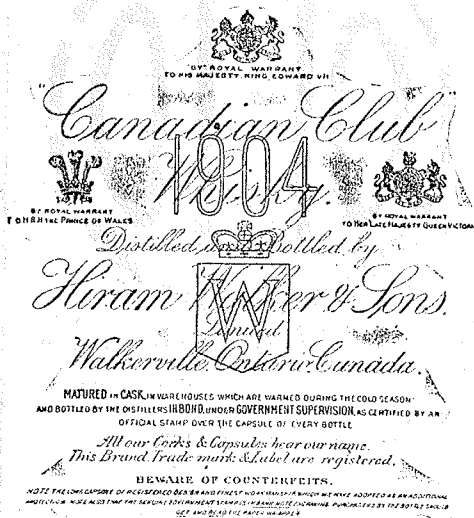 BY ROYAL WARRANT
TO HIS MAJESTY, KING EDWARD VII
"Canadian Club"
1904
Whisky.
BY ROYAL WARRANT
TO H.R.H. THE PRINCE OF WALES
BY ROYAL WARRANT
TO HER LATE MAJESTY QUEEN VICTORIA
Distilled and Bottled by
Hiram Walker & Sons.
W
Limited
Walkerville, Ontario, Canada.
MATURED IN CASK, IN WAREHOUSES WHICH ARE WARMED DURING THE COLD SEASON
AND BOTTLED BY THE DISTILLERS IN BOND, UNDER GOVERNMENT SUPERVISION, AS CERTIFIED BY AN
OFFICIAL STAMP OVER THE CAPSULE OF EVERY BOTTLE
All our Corks & Capsules bear our name.
This Brand, Trade mark & Label are registered.
BEWARE OF COUNTERFEITS.
NOTE THE LONG CAPSULE OF REGISTERED DESIGN AND FINEST WORKMANSHIP WHICH WE HAVE ADOPTED AS AN ADDITIONAL
PROTECTION. NOTE ALSO THAT THE GENUINE GOVERNMENT STAMP IS PURCHASERS BY THE BOTTLE SHOULD
GET AND READ THE PAPER WRAPPER